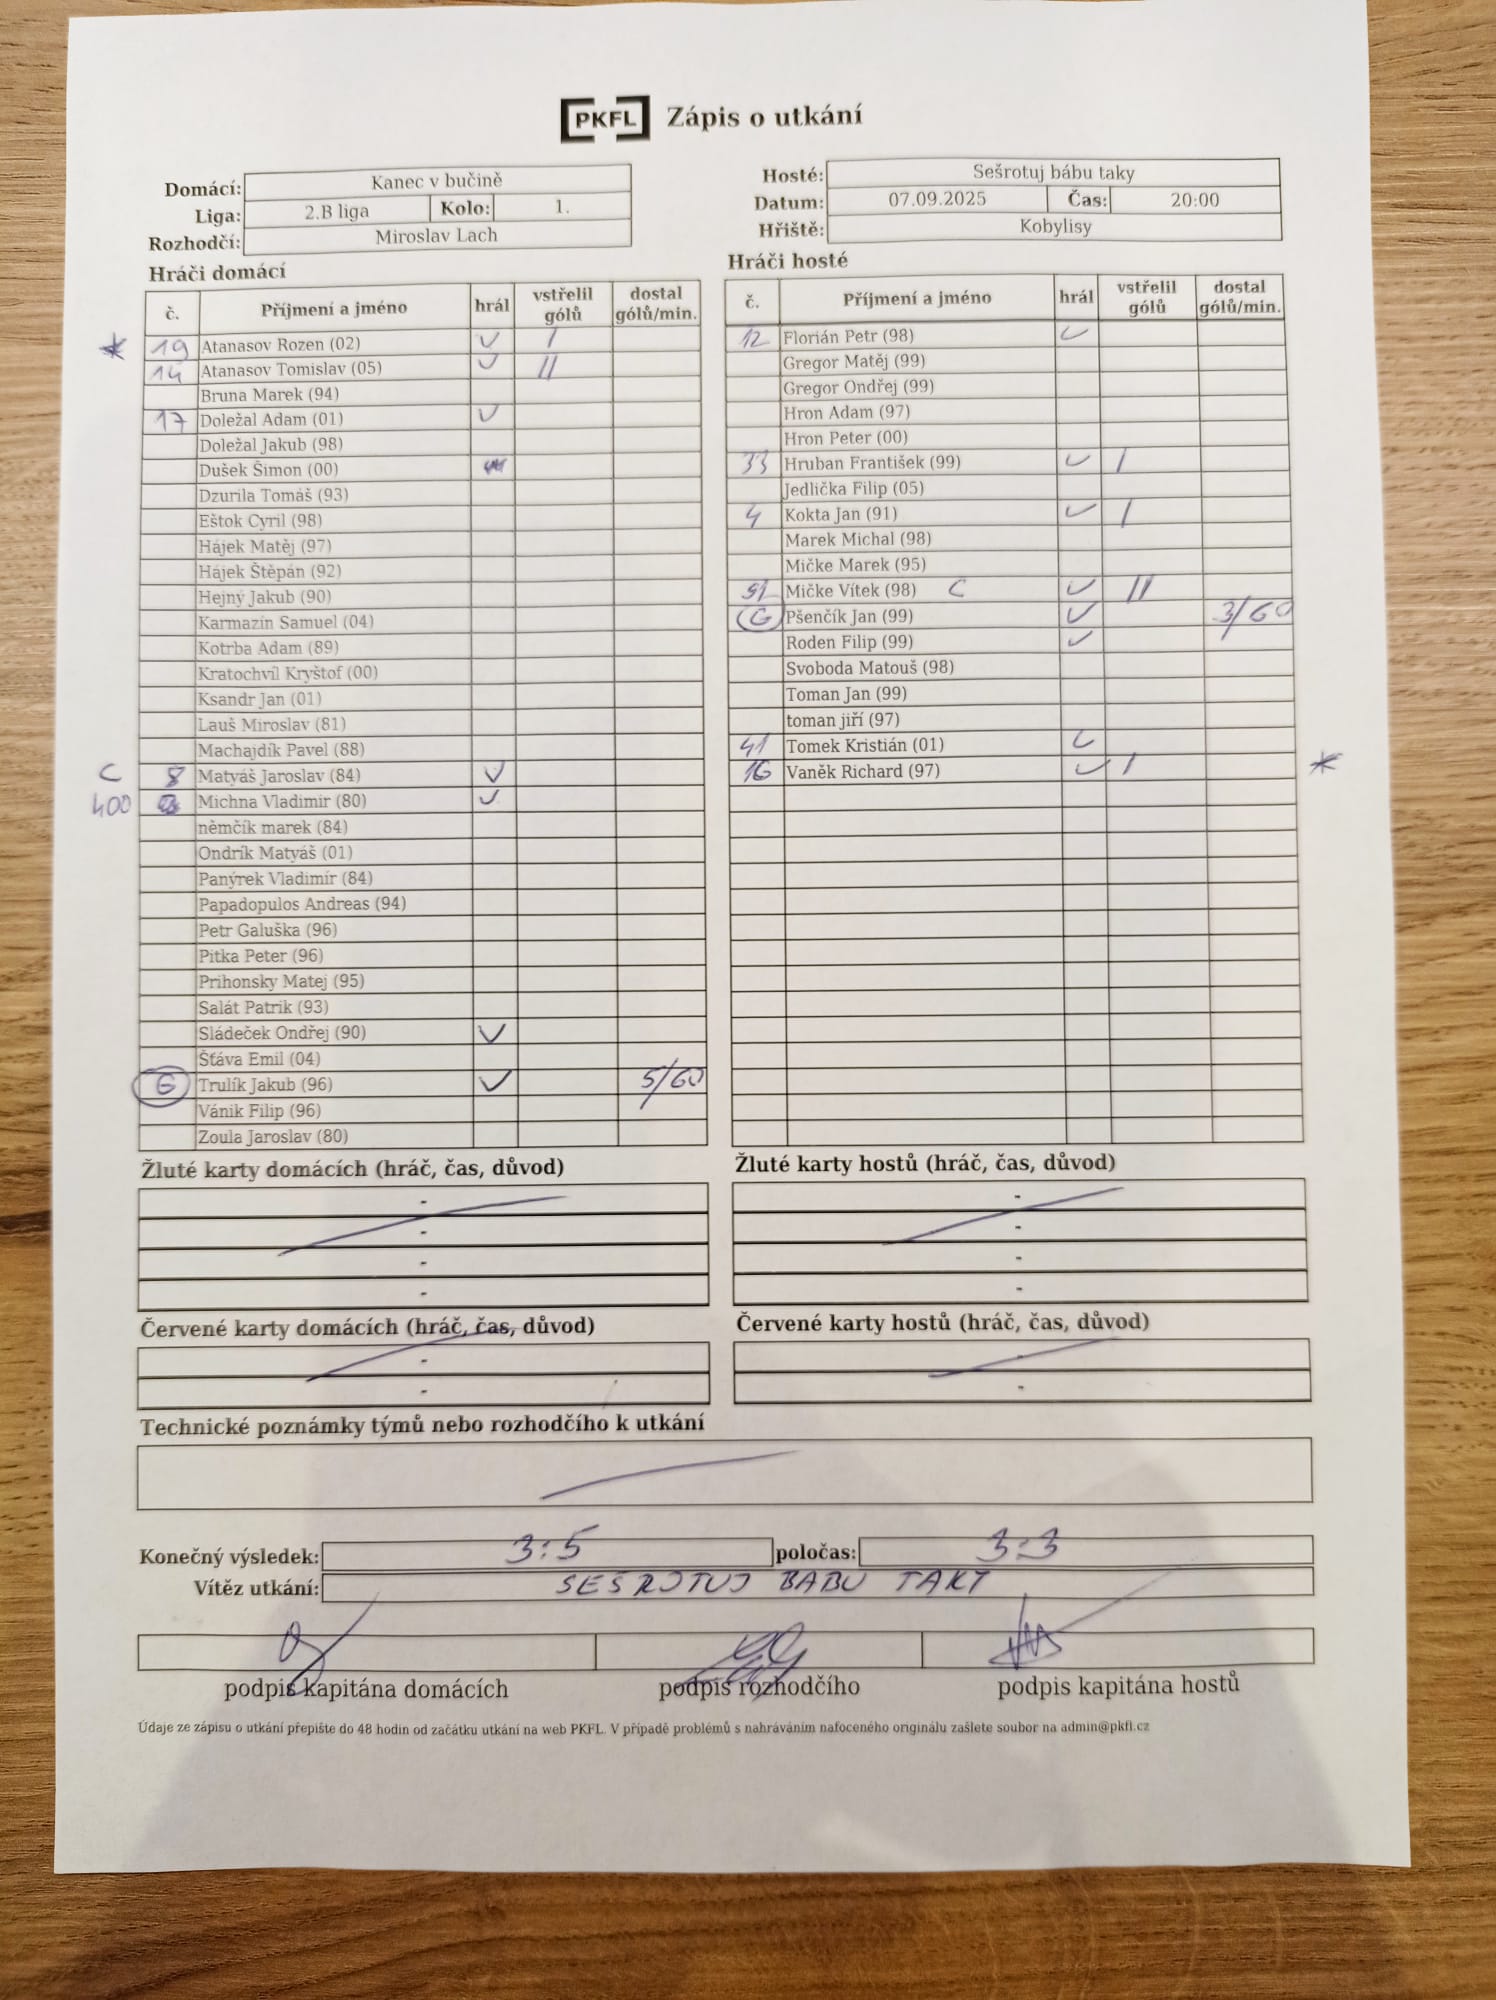 PKFL Zápis o utkání
Domácí: Kanec v bučině
Liga: 2.B liga Kolo: 1.
Rozhodčí: Miroslav Lach
Hosté: Sešrotuj bábu taky
Datum: 07.09.2025 Čas: 20:00
Hřiště: Kobylisy
Hráči domácí
č. Příjmení a jméno hrál vstřelil gólů dostal gólů/min.
* 19 Atanasov Rozen (02) ✓ I
14 Atanasov Tomislav (05) ✓ II
Bruna Marek (94)
17 Doležal Adam (01) ✓
Doležal Jakub (98)
Dušek Šimon (00)
Dzurila Tomáš (93)
Eštok Cyril (98)
Hájek Matěj (97)
Hájek Štěpán (92)
Hejný Jakub (90)
Karmazín Samuel (04)
Kotrba Adam (89)
Kratochvíl Kryštof (00)
Ksandr Jan (01)
Lauš Miroslav (81)
Machajdík Pavel (88)
C 8 Matyáš Jaroslav (84) ✓
400 Michna Vladimir (80) ✓
němčík marek (84)
Ondrík Matyáš (01)
Panýrek Vladimír (84)
Papadopulos Andreas (94)
Petr Galuška (96)
Pitka Peter (96)
Prihonsky Matej (95)
Salát Patrik (93)
Sládeček Ondřej (90) ✓
Šťáva Emil (04)
G Trulík Jakub (96) ✓ 5/60
Vánik Filip (96)
Zoula Jaroslav (80)
Hráči hosté
č. Příjmení a jméno hrál vstřelil gólů dostal gólů/min.
12 Florián Petr (98) ✓
Gregor Matěj (99)
Gregor Ondřej (99)
Hron Adam (97)
Hron Peter (00)
33 Hruban František (99) ✓ I
Jedlička Filip (05)
4 Kokta Jan (91) ✓ I
Marek Michal (98)
Mičke Marek (95)
91 Mičke Vítek (98) C ✓ II
G Pšenčík Jan (99) ✓ 3/60
Roden Filip (99) ✓
Svoboda Matouš (98)
Toman Jan (99)
toman jiří (97)
41 Tomek Kristián (01) ✓
16 Vaněk Richard (97) ✓ I *
Žluté karty domácích (hráč, čas, důvod)
-
-
-
-
Žluté karty hostů (hráč, čas, důvod)
-
-
-
-
Červené karty domácích (hráč, čas, důvod)
-
-
Červené karty hostů (hráč, čas, důvod)
-
-
Technické poznámky týmů nebo rozhodčího k utkání
Konečný výsledek: 3:5 poločas: 3:3
Vítěz utkání: SEŠROTUJ BABU TAKY
podpis kapitána domácích podpis rozhodčího podpis kapitána hostů
Údaje ze zápisu o utkání přepište do 48 hodin od začátku utkání na web PKFL. V případě problémů s nahráváním nafoceného originálu zašlete soubor na admin@pkfl.cz